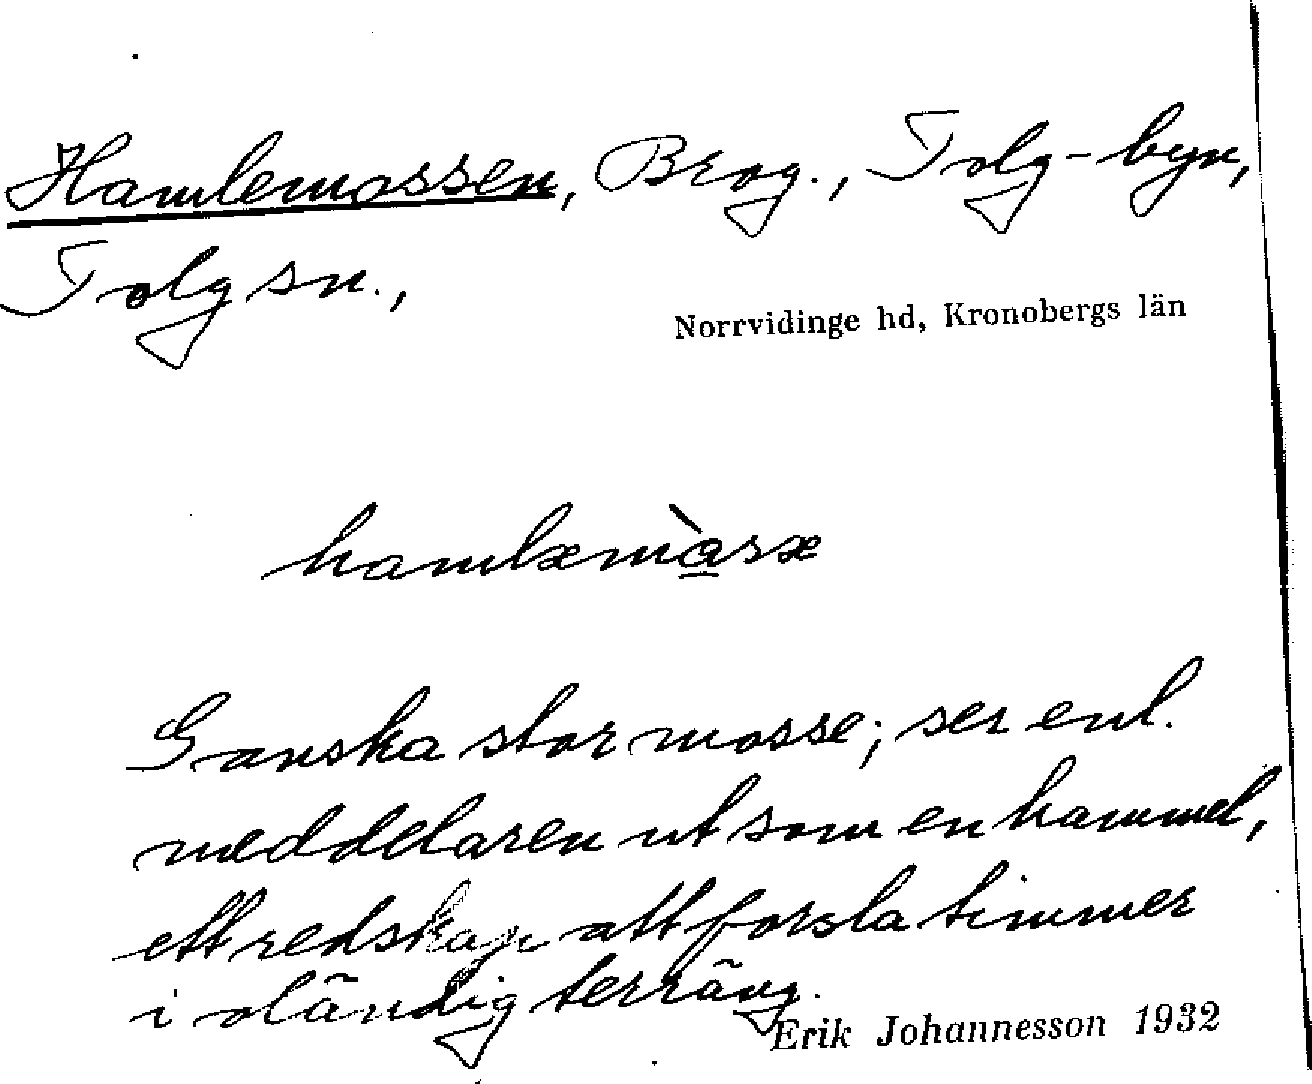 Hamlemossen, Brog., Tolg-byn,
Tolg sn.,
Norrvidinge hd, Kronobergs län
hamlæmàsæ
Ganska stor mosse; ser enl.
meddelaren ut som en hammel,
ett redskap att forsla timmer
i oländig terräng.
Erik Johannesson 1932